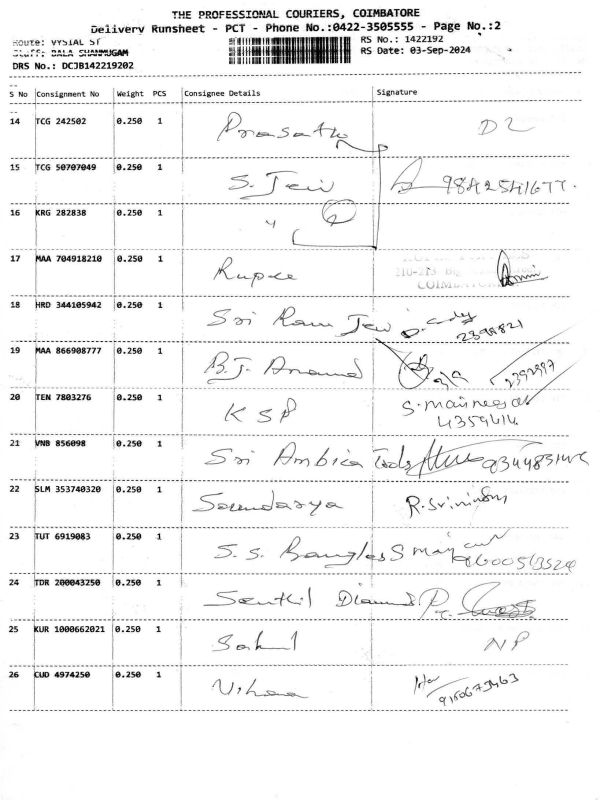 THE PROFESSIONAL COURIERS, COIMBATORE
Delivery Runsheet - PCT - Phone No.:0422-3505555 - Page No.:2
Route: VYSIAL ST RS No.: 1422192
Staff: BALA SHANMUGAM RS Date: 03-Sep-2024
DRS No.: DCJB142219202
S No Consignment No Weight PCS Consignee Details Signature
14 TCG 242502 0.250 1 Prasath D2
15 TCG 50707049 0.250 1 S. Jew 9842541677
16 KRG 282838 0.250 1 " 2
17 MAA 704918210 0.250 1 Rupee COIMBATORE
18 HRD 344105942 0.250 1 Sri Ram Jew 2399821
19 MAA 866908777 0.250 1 B.J. Anand
20 TEN 7803276 0.250 1 KSP 4359414
21 VNB 856098 0.250 1 Sri Ambica
22 SLM 353740320 0.250 1 Soundarya
23 TUT 6919083 0.250 1 S.S. Bangles
24 TDR 200043250 0.250 1 Senthil Diamond
25 KUR 1000662021 0.250 1 NP
26 CUD 4974250 0.250 1 9150673463